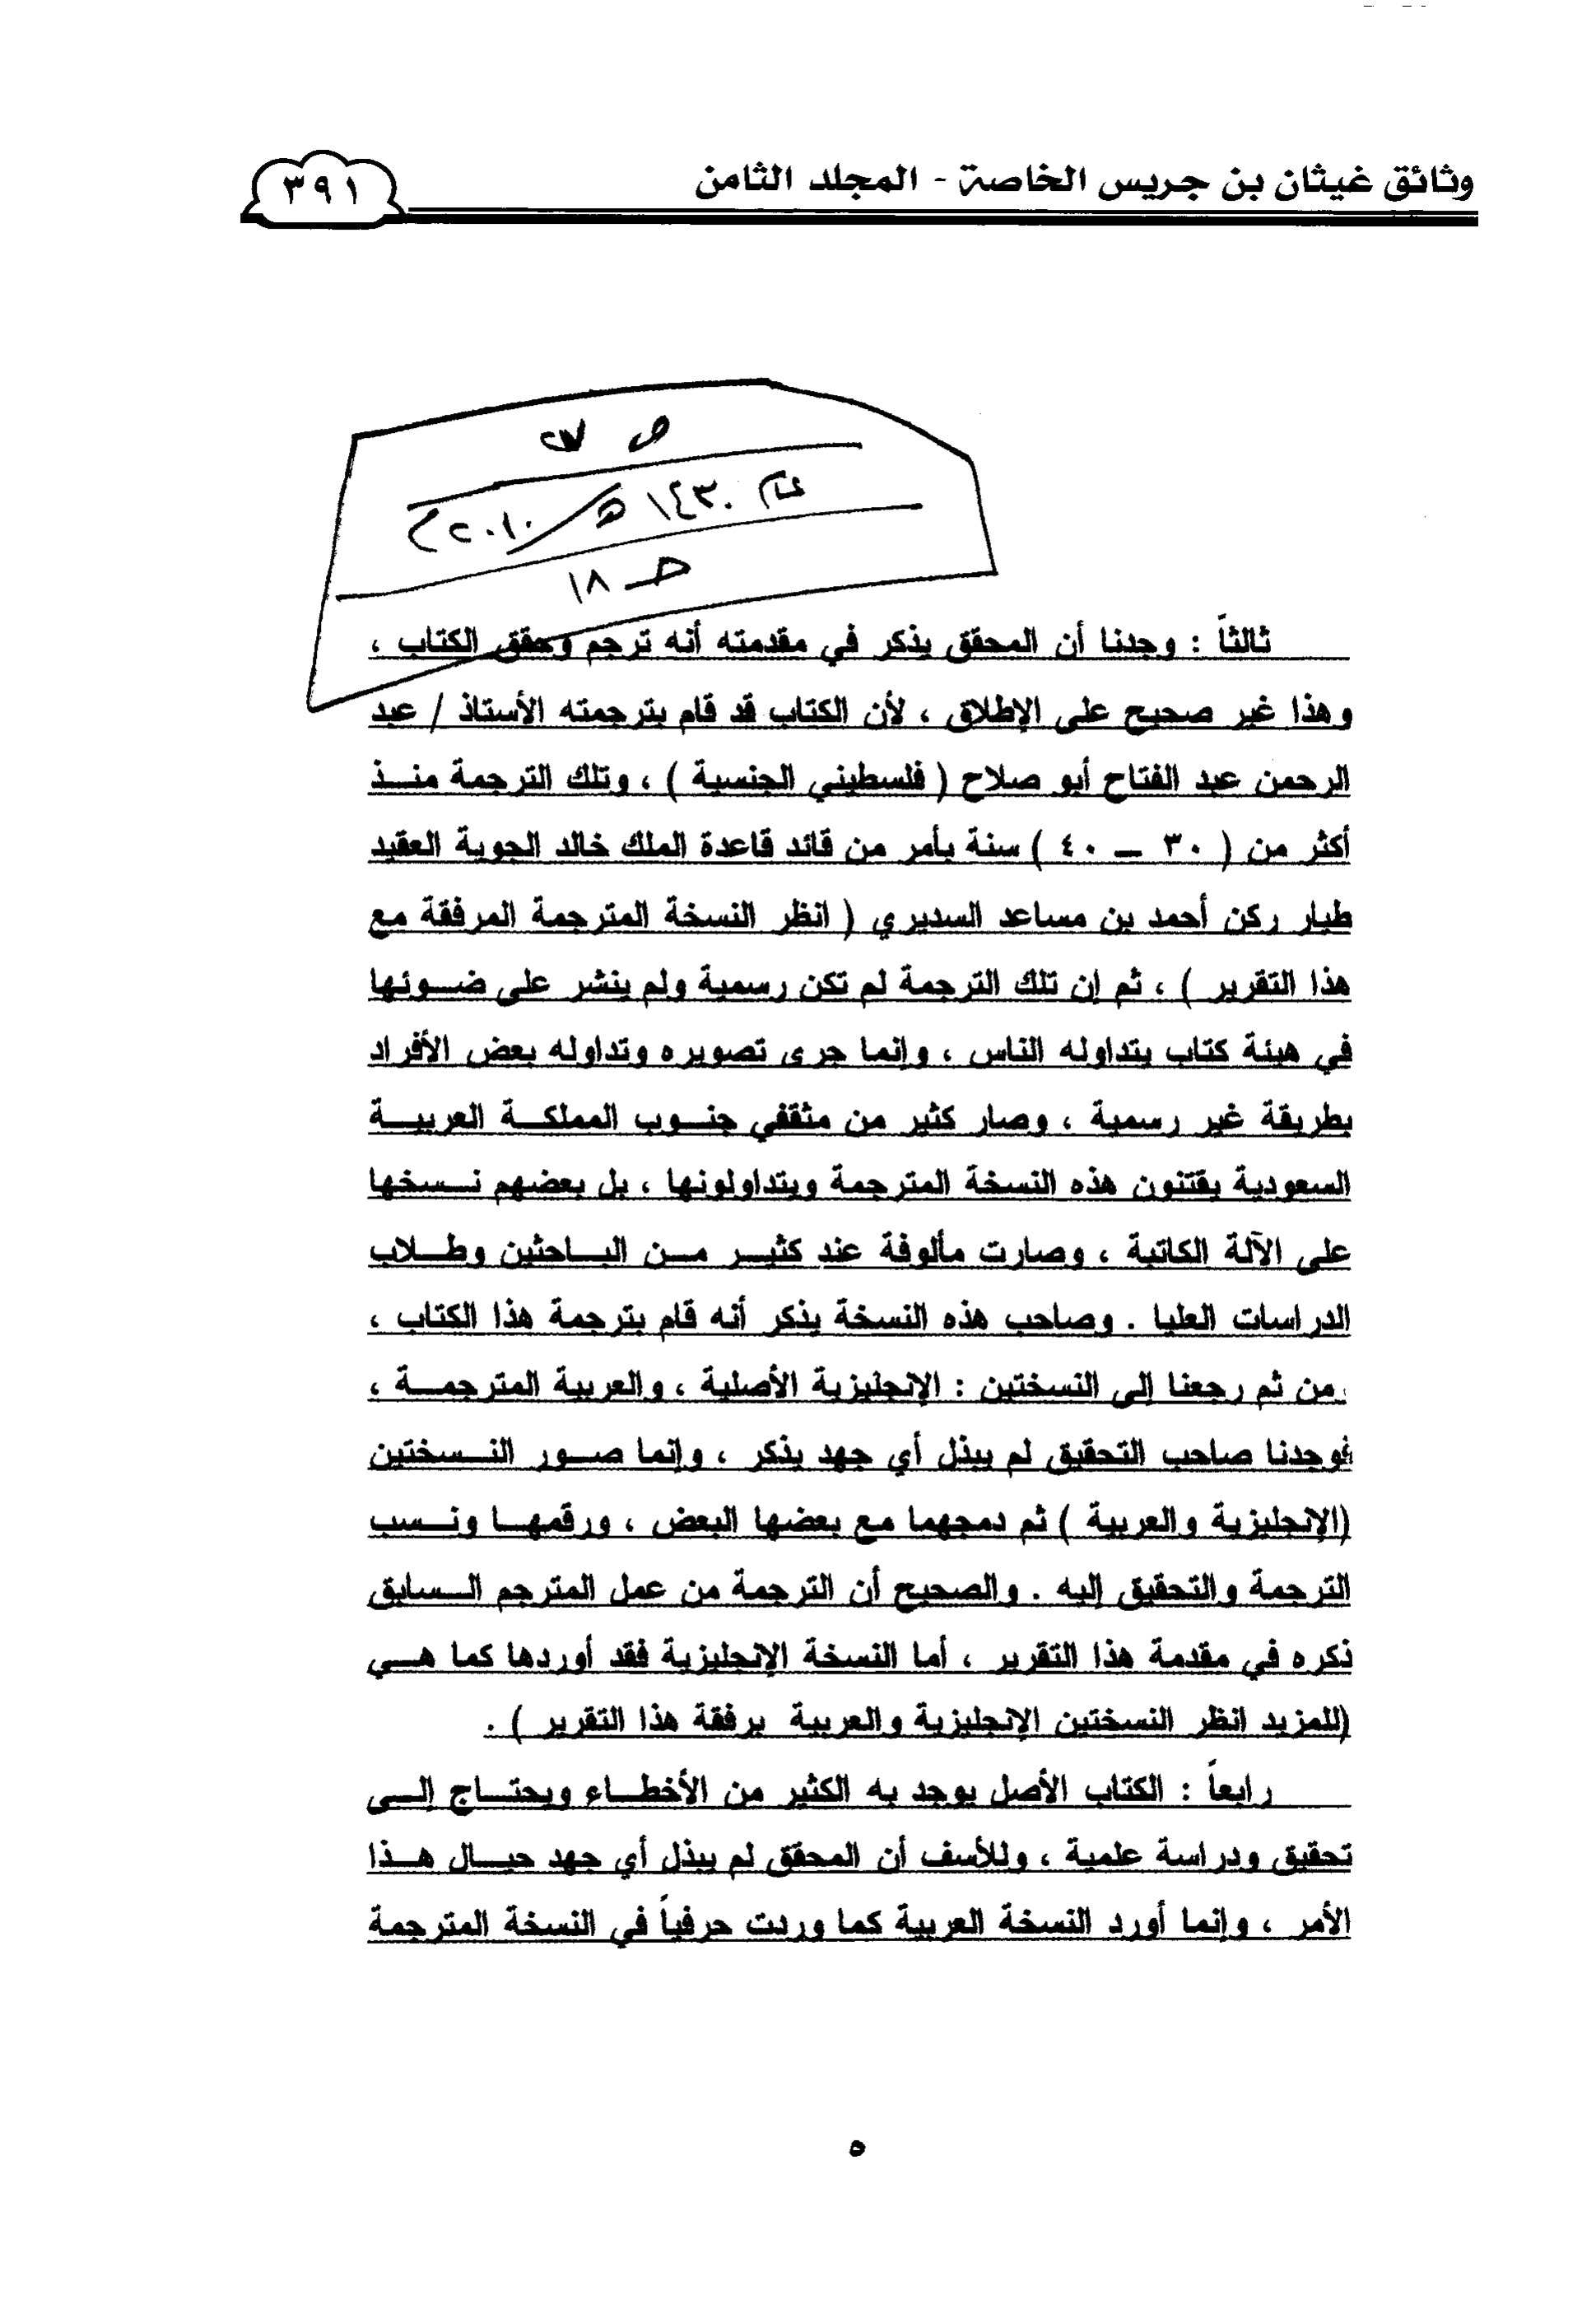 وثائق غيثان بن جريس الخاصة - المجلد الثامن
٣٩١
عام ١٤٣٠هـ/٢٠١٠م
صـ ١٨
ثالثاً : وجدنا أن المحقق يذكر في مقدمته أنه ترجم وحقق الكتاب ،
وهذا غير صحيح على الإطلاق ، لأن الكتاب قد قام بترجمته الأستاذ / عبد
الرحمن عبد الفتاح أبو صلاح ( فلسطيني الجنسية ) ، وتلك الترجمة منــذ
أكثر من ( ٣٠ – ٤٠ ) سنة بأمر من قائد قاعدة الملك خالد الجوية العقيد
طيار ركن أحمد بن مساعد السديري ( انظر النسخة المترجمة المرفقة مع
هذا التقرير ) ، ثم إن تلك الترجمة لم تكن رسمية ولم ينشر على ضــوئها
في هيئة كتاب يتداوله الناس ، وإنما جرى تصويره وتداوله بعض الأفراد
بطريقة غير رسمية ، وصار كثير من مثقفي جنــوب المملكــة العربيــة
السعودية يقتنون هذه النسخة المترجمة ويتداولونها ، بل بعضهم نــسخها
على الآلة الكاتبة ، وصارت مألوفة عند كثيــر مــن البــاحثين وطــلاب
الدراسات العليا . وصاحب هذه النسخة يذكر أنه قام بترجمة هذا الكتاب ،
من ثم رجعنا إلى النسختين : الإنجليزية الأصلية ، والعربية المترجمــة ،
فوجدنا صاحب التحقيق لم يبذل أي جهد يذكر ، وإنما صــور النــسختين
(الإنجليزية والعربية ) ثم دمجهما مع بعضها البعض ، ورقمهــا ونــسب
الترجمة والتحقيق إليه . والصحيح أن الترجمة من عمل المترجم الــسابق
ذكره في مقدمة هذا التقرير ، أما النسخة الإنجليزية فقد أوردها كما هــي
(للمزيد انظر النسختين الإنجليزية والعربية برفقة هذا التقرير ) .
رابعاً : الكتاب الأصل يوجد به الكثير من الأخطــاء ويحتــاج إلــى
تحقيق ودراسة علمية ، وللأسف أن المحقق لم يبذل أي جهد حيــال هــذا
الأمر ، وإنما أورد النسخة العربية كما وردت حرفياً في النسخة المترجمة
٥